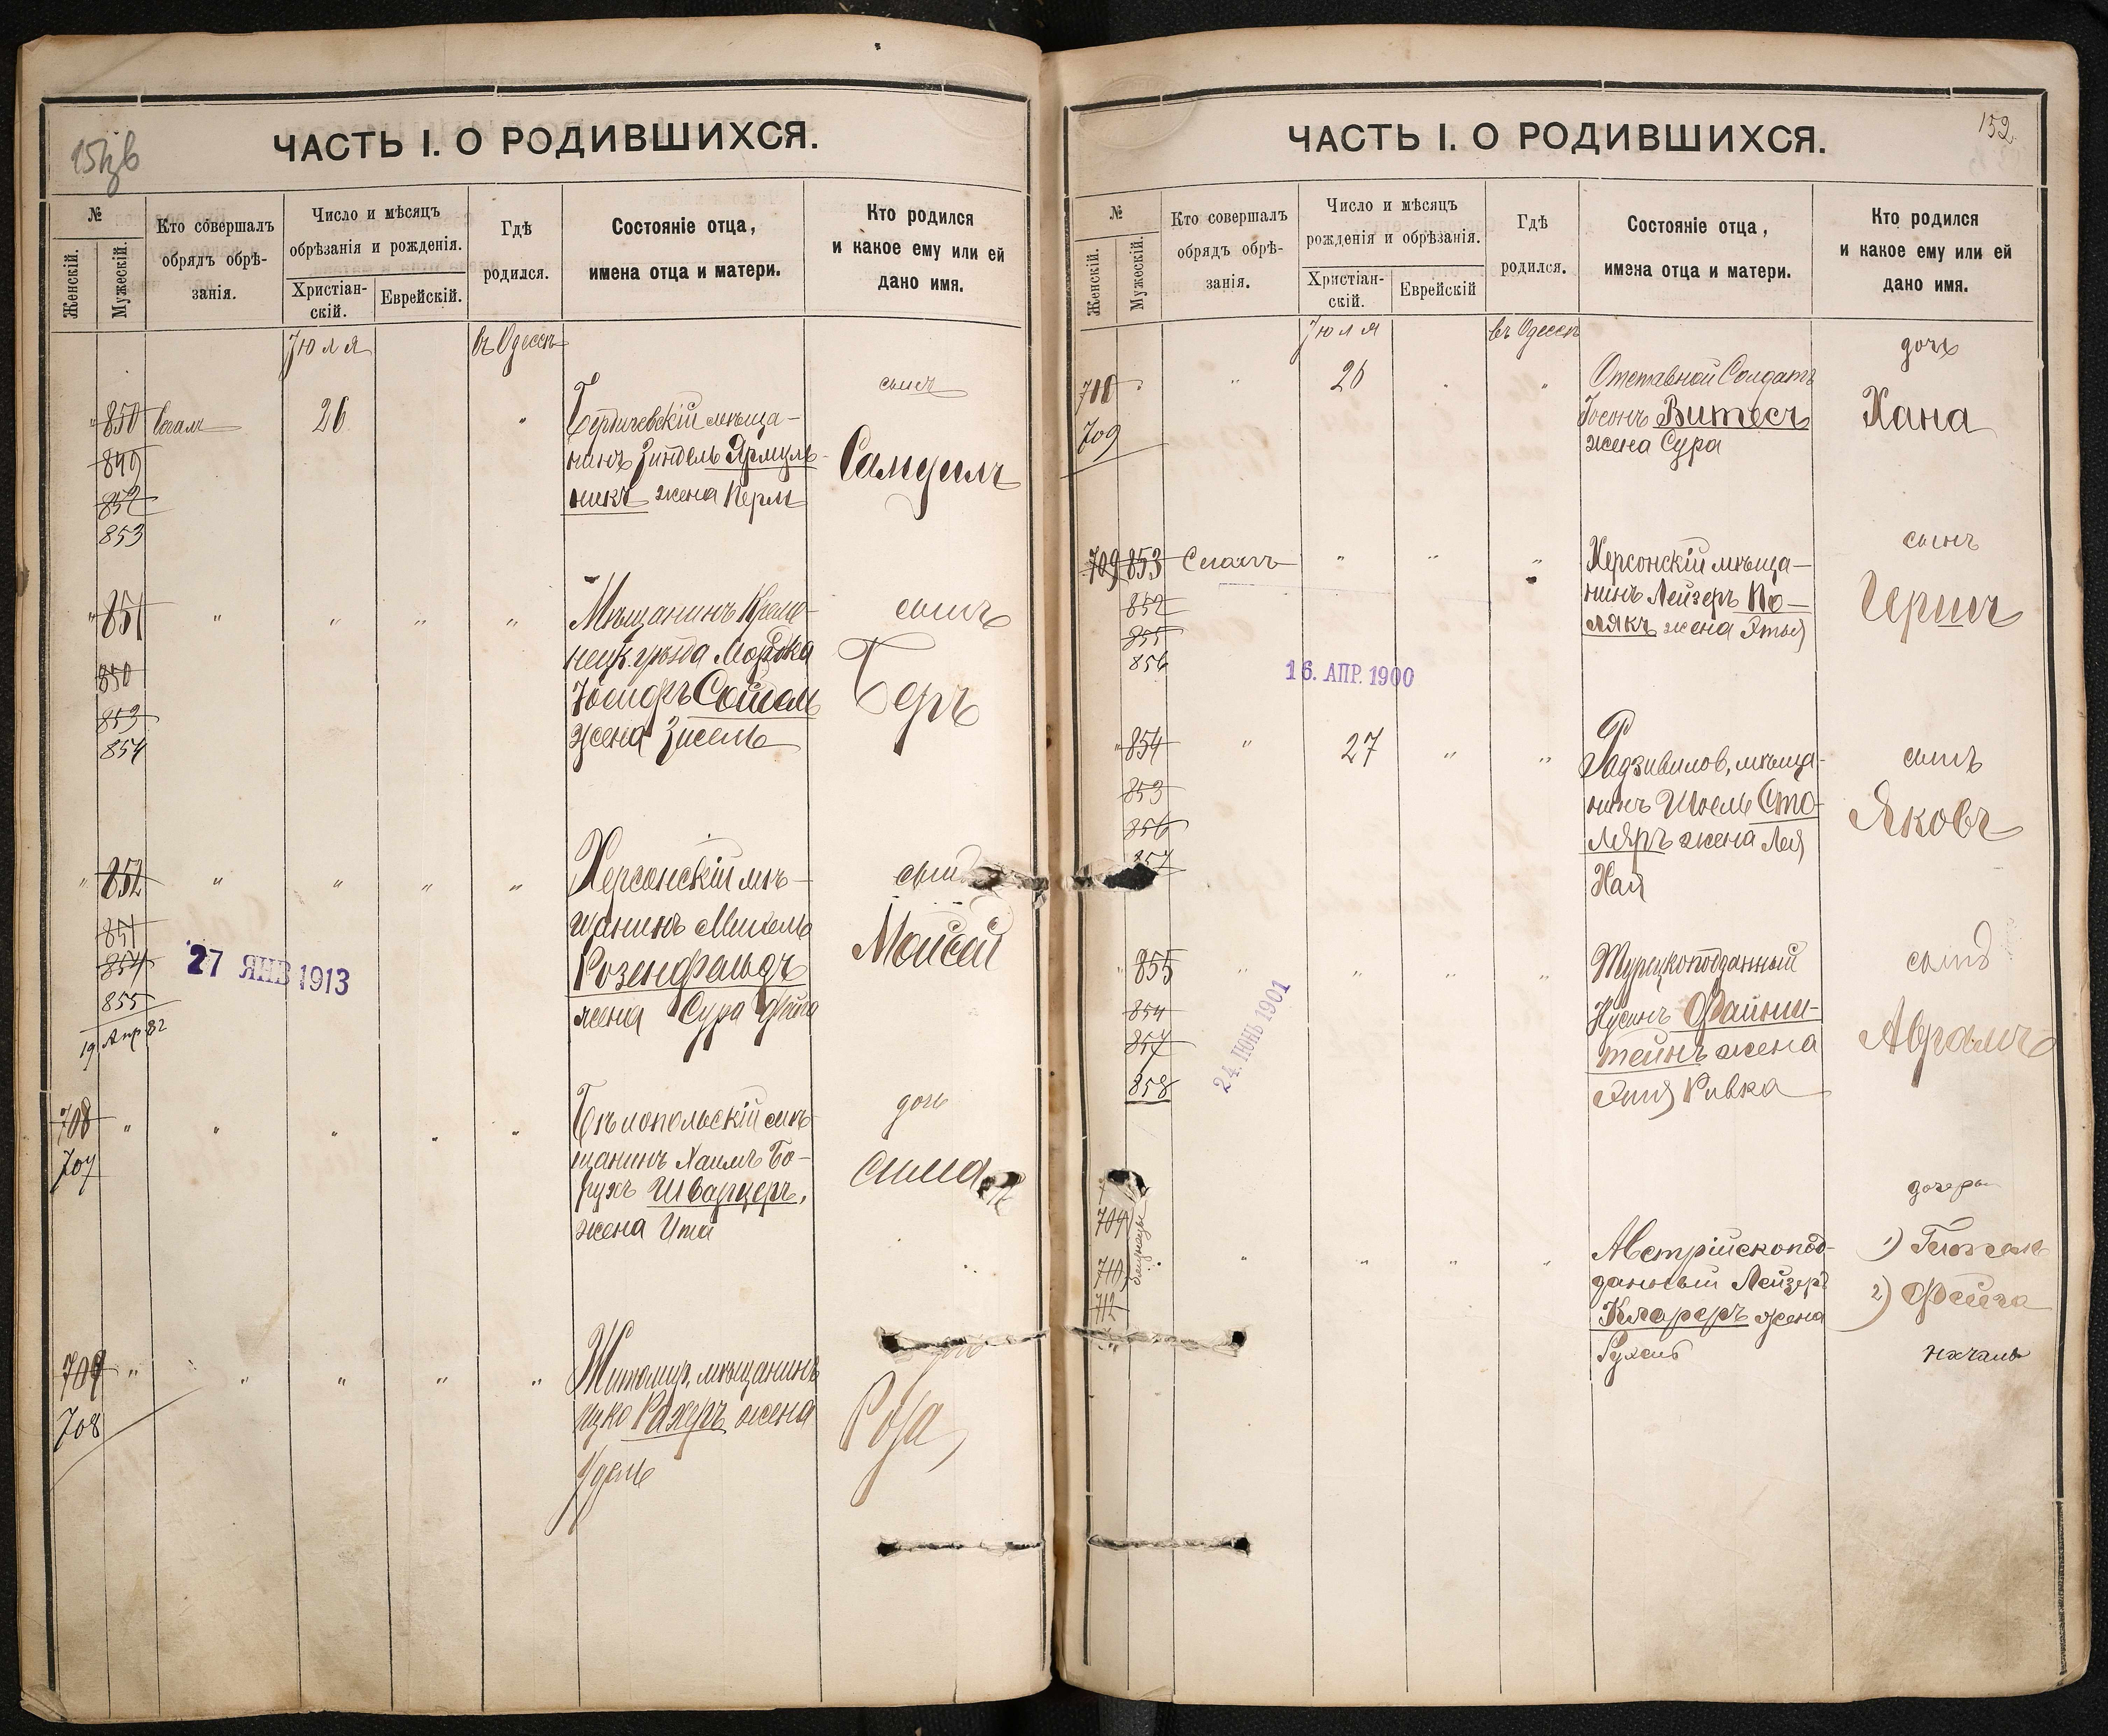 151/зв
ЧАСТЬ I. О РОДИВШИХСЯ.
№
Женскій.
Мужескій.
Кто совершалъ
обрядъ обрѣ-
занія.
Число и мѣсяцъ
обрѣзанія и рожденія.
Христіан-
скій.
Еврейскій.
Гдѣ
родился.
Состояніе отца,
имена отца и матери.
Кто родился
и какое ему или ей
дано имя.
Іюля
въ Одессѣ
850
849
852
853
26
"
Бердичевскій мѣща-
нинъ Зиндель Ярмуль-
никъ жена Перль
сынъ
Самуилъ
" 851 " " " "
850
853
854
Мѣщанинъ Креме-
нецк. уѣзда Мордка
Іосифъ Сойгель
жена Зисель
сынъ
Беръ
" 852 " " " "
851
854
855
19 Апр. 82
27 ЯНВ 1913
Херсонскій мѣ-
щанинъ Михель
Розенфельдъ
жена Сура Фейга
сынъ
Моисей
708 " " " " "
707
Бѣлопольскій мѣ-
щанинъ Хаимъ Бо-
рухъ Шварцеръ,
жена Ита
дочь
Сима
709 " " " " " "
708
Житомир. мѣщанинъ
Ицко Рахеръ жена
Удель
Роза
152
ЧАСТЬ I. О РОДИВШИХСЯ.
№
Женскій.
Мужескій.
Кто совершалъ
обрядъ обрѣ-
занія.
Число и мѣсяцъ
рожденія и обрѣзанія.
Христіан-
скій.
Еврейскій
Гдѣ
родился.
Состояніе отца,
имена отца и матери.
Кто родился
и какое ему или ей
дано имя.
Іюля
въ Одессѣ
710 " " 26 " "
709
Отставной Солдатъ
Іосонъ Витесъ
жена Сура
дочь
Хана
709 853 " " "
852
855
856
16. АПР. 1900
Херсонскій мѣща-
нинъ Лейзеръ По-
лякъ жена Этья
сынъ
Гершъ
" 854 " 27 " "
853
856
857
Радзивилов. мѣща-
нинъ Шоель Сто-
ляръ жена Лея
Хая
сынъ
Яковъ
" 855 " " " "
854
857
858
24. ІЮНЬ 1901
Турецкоподданный
Нусинъ Файнш-
тейнъ жена
Ривка
сынъ
Аврамъ
709
710
712
близнецы
" " " "
Австрійскопод-
данный Лейзеръ
Клареръ жена
Рухель
дочери
1)
2) Фейга